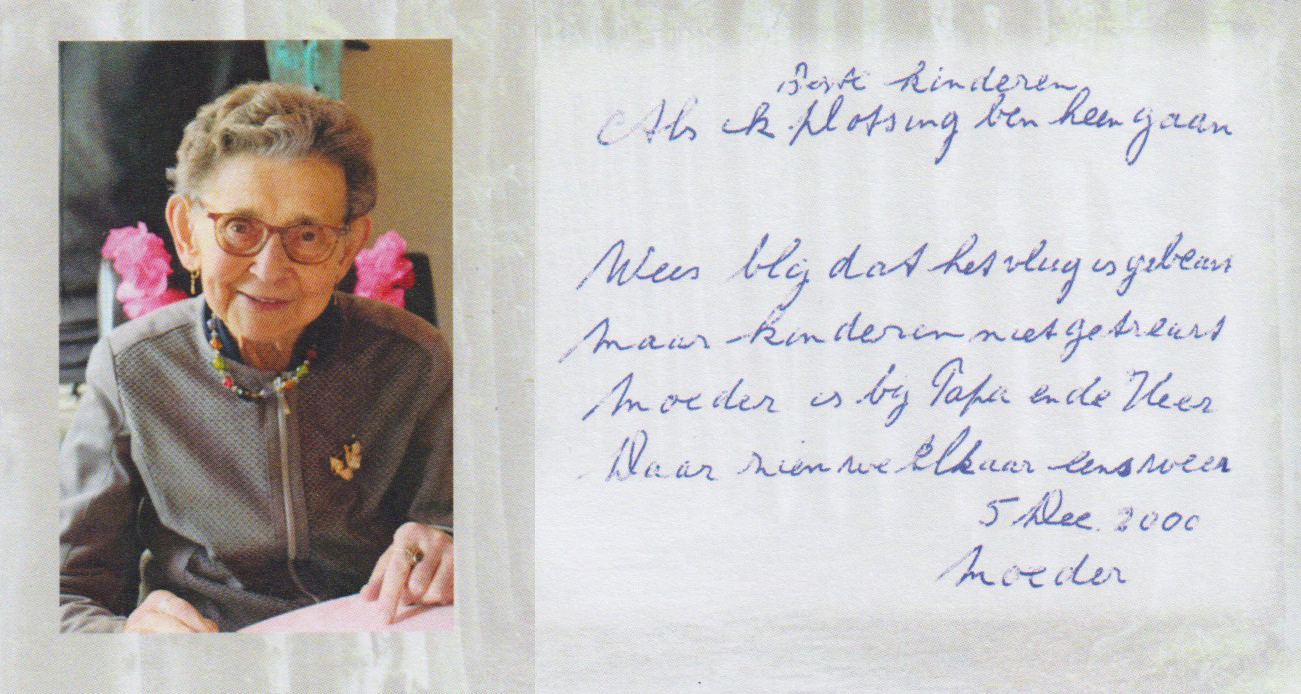 Beste kinderen
Als ik plotsing ben heen gaan
Wees blij dat het vlug is gebeurt
maar kinderen niet getreurt
moeder is bij Papa en de Heer
Daar zien we Elkaar eens weer
5 Dec. 2000
moeder